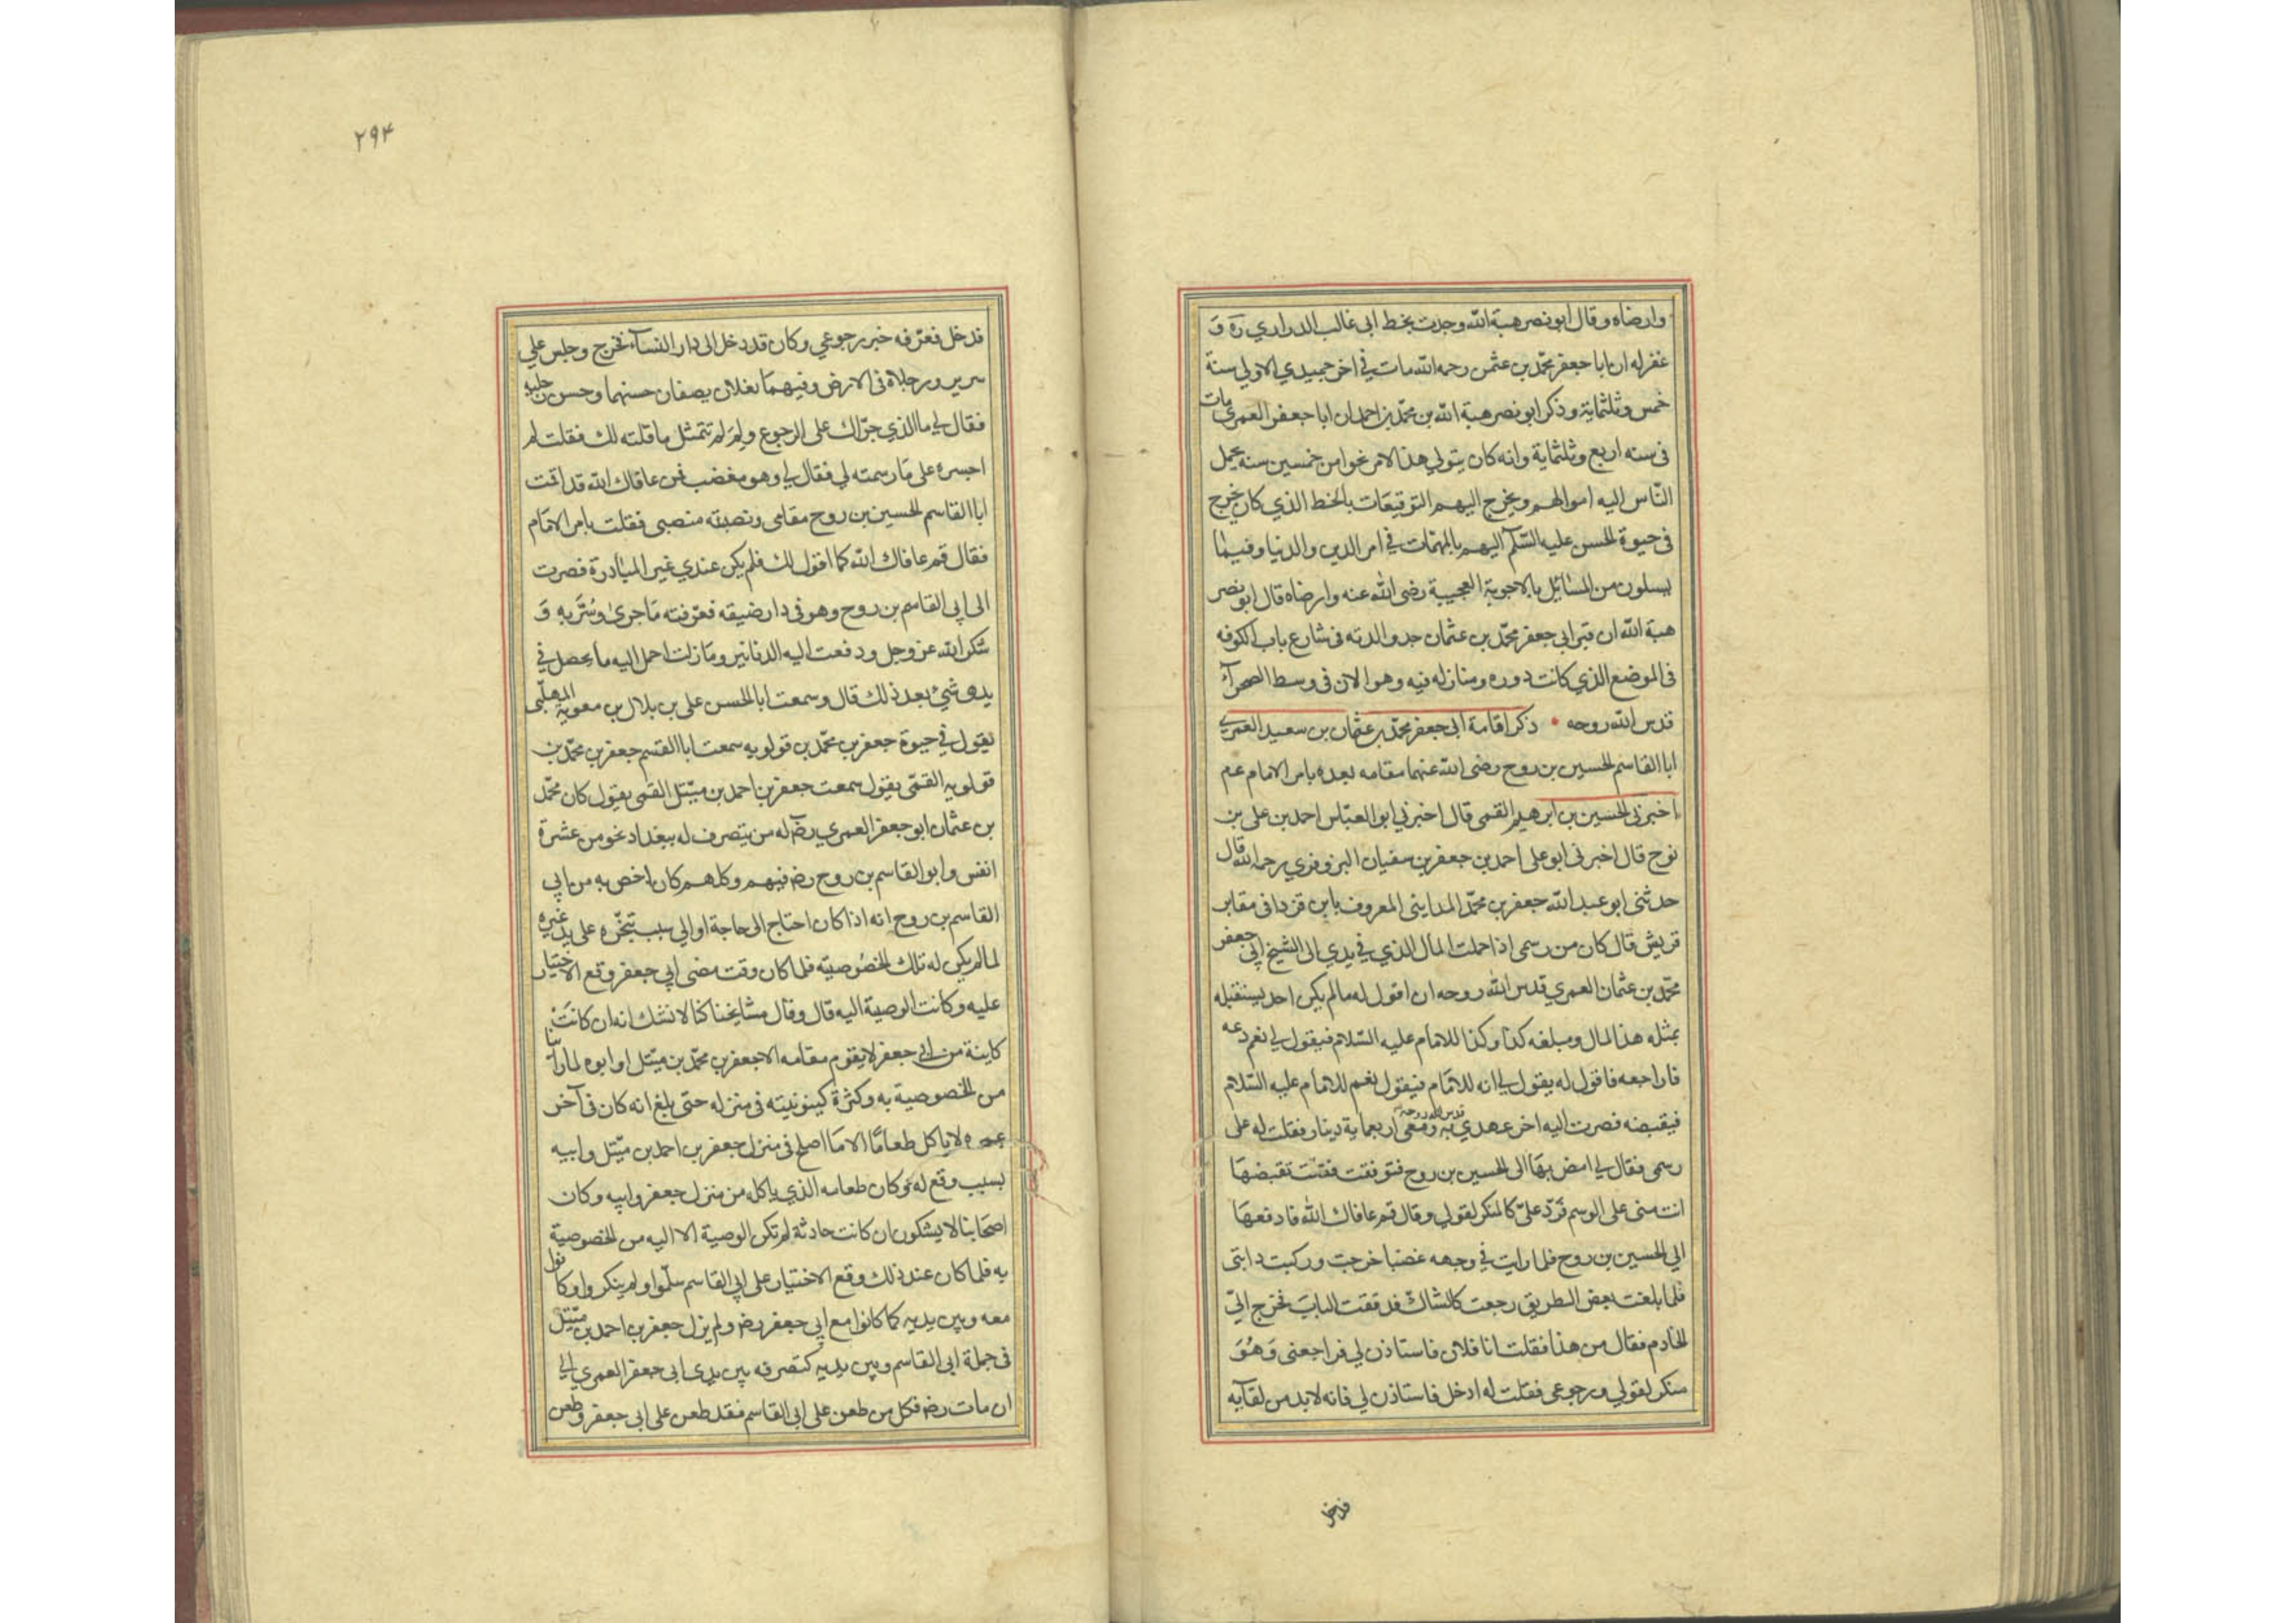 وارضاه وقال ابونصر هبة الله وجدت بخط ابی غالب الدراري ره وَ
غفر له ان ابا جعفر محمّد بن عثمن رحمه الله مات في اخر جميدي الاولي سنة
خمس وثلثماية وذكر ابو نصر هبة الله بن محمّد بن احمد ان ابا جعفر العمرى مات
فى سنه اربع وثلثماية وانه كان يتولي هذا الامر نحوا من خمسين سنه يحمل
النّاس اليه اموالهم ويخرج اليهم التوقيعَات بالخط الذي كان يخرج
فى حيوة الحسن عليه السّلم اليهم بالمهمّات في امر الدين والدنيا وفيما
يسلون من المسَائل بالاجوبة العجيبة رضى الله عنه وارضاه قال ابو نصر
هبة الله ان قبر ابي جعفر محمّد بن عثمان حد والدته فى شارع باب الكوفه
فى الموضع الذي كانت دوره ومنازله فيه وهو الان فى وسط الصحرآء
قدس الله روحه • ذكر اقامة ابى جعفر محمّد بن عثمان بن سعيد العمري
ابا القاسم الحسين بن روح رضى الله عنهما مقامه بعده بامر الامام عم
اخبرنى الحسين بن ابرهيم القمى قال اخبرني ابو العبّاس احمد بن على بن
نوح قال اخبرنى ابو على احمد بن جعفر بن سفيان البزوفري رحمه الله قال
حدثنى ابو عبد الله جعفر بن محمّد المداينى المعروف بابن قزدا فى مقابر
قريش قال كان من رسمى اذا حملت المال الذي في يدي الى الشيخ ابى جعفر
محمّد بن عثمان العمري قدس الله روحه ان اقول له مالم يكن احد يستقبله
بمثله هذا المال ومبلغه كذا وكذا للامام عليه السّلام فيقول لي نعم دعه
فاراجعه فاقول له يقول لي انه للامَام فيقول نعم للامام عليه السّلام
فيقبضه فصرت اليه اخر عهدي به قدس الله روحه ومعى اربعماية دينار فقلت له على
رسمى فقال لي امض بهَا الى الحسين بن روح فتوقفت فقلت تقبضهَا
انت منى على الرسم فَردّ عليّ كالمنكر لقولي وقال قم عافاك الله فادفعهَا
الي الحسين بن روح فلما رايت في وجهه غضبا خرجت وركبت دابتى
فلما بلغت بعض الطريق رجعت كالشاكّ فدققت البابَ فخرج اليّ
الخادم فقال من هذا فقلت انا فلان فاستاذن لي فراجعنى وَهُوَ
منكر لقولي ورجوعى فقلت له ادخل فاستاذن لي فانه لابد من لقآيه
فدخل
٢٩٤
فدخل فعرّفه خبر رجوعي وكان قد دخل الى دار النسآء فخرج وجلس علي
سرير ورجلاه فى الارض وفيهمَا نعلان يصفان حسنهما وحسن رجليه
فقال لي ما الذي جرّاك على الرجوع ولِمَ لم تتمثل ما قلته لك فقلت لم
اجسره على مَا رسمته لي فقال لي وهو مغضب قم عافاك الله قد اقمت
ابا القاسم الحسين بن روح مقامى ونصبته منصبى فقلت بامر الامَام
فقال قم عافاك الله كما اقول لك فلم يكن عندي غير المبَادرة فصرت
الى ابى القاسم بن روح وهو فى دار ضيقه فعرّفته مَا جرىٰ وسُرَّ به وَ
شكر الله عز وجل ودفعت اليه الدنانير ومَا زلت احمل اليه مايحصل في
يدى شئ بعد ذلك قال وسمعت ابا الحسن على بن بلال بن معوية المهلّبى
يقول في حيوة جعفر بن محمّد بن قولويه سمعت ابا القسم جعفر بن محمّد بن
قولويه القمّى يقول سمعت جعفر بن احمد بن متيّل القمى يقول كان محمّد
بن عثمان ابو جعفر العمري رضَ له من يتصرف له ببغداد نحو من عشرة
انفس وابو القاسم بن روح رضَ فيهم وكلهم كان اخص به من ابي
القاسم بن روح انه اذا كان احتاج الى حاجة او الي سبب يَنجّزه على يد غيره
لمالم يكن له تلك الخصُوصيّه فلما كان وقت مضى ابي جعفر وقع الاختيار
عليه وكانت الوصية اليه قال وقال مشايخنا كنا لا نشك انه ان كانَتْ
كاينة من ابى جعفر لا يقوم مقامه الا جعفر بن محمّد بن متيّل او ابوه لما راَينا
من الخصوصية به وكثرة كينونيته فى منزله حتى بلغ انه كان فى آخر
عمره لا ياكل طعامًا الا مَا اصلح فى منزل جعفر بن احمد بن متيّل وابيه
بسبب وقع له وكان طعامه الذي ياكله من منزل جعفر وابيه وكان
اصحَابنا لا يشكون ان كانت حادثة لم تكن الوصية الا اليه من الخصوصية
به فلما كان عند ذلك وقع الاختيار على ابي القاسم سلّموا ولم ينكروا وكانوا
معه وبين يديه كما كانوا مع ابي جعفر رضَ ولم يزل جعفر بن احمد بن متّيّل
فى جملة ابى القاسم وبين يديه كتصرفه بين يدى ابى جعفر العمري الي
ان مات رضَ فكل من طعن على ابى القاسم فقد طعن على ابى جعفر وطعن